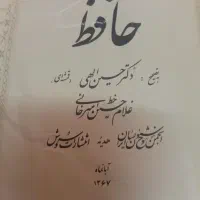 حافظ
بتصحیح : دکتر حسین الهی قمشه‌ای
غلامحسین میرخانی
انجمن خوشنویسان ایران
هدیه انتشارات سروش
آبانماه
۱۳۶۷